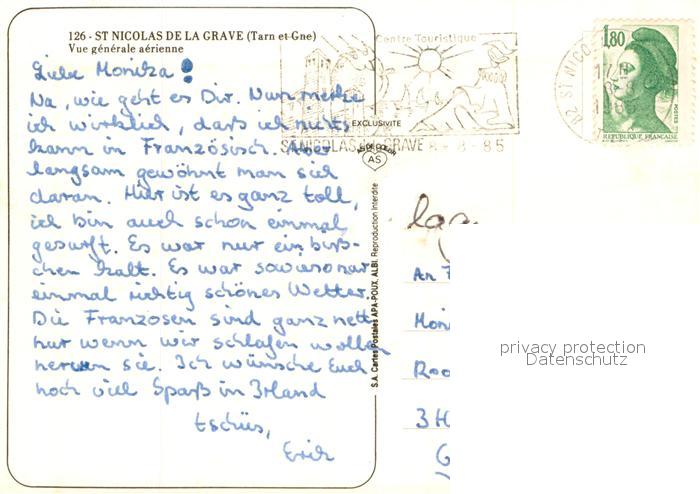 126 - ST NICOLAS DE LA GRAVE (Tarn et Gne)
Vue générale aérienne
Liebe Monika!
Na, wie geht es Dir. Nun merke
ich wirklich, daß ich nichts
kann in Französisch. Aber
langsam gewöhnt man sich
daran. Hier ist es ganz toll,
ich bin auch schon einmal
gesurft. Es war nur ein biß-
chen kalt. Es war sowieso nur
einmal richtig schönes Wetter.
Die Franzosen sind ganz nett
nur wenn wir schlafen wollen
nerven sie. Ich wünsche Euch
noch viel Spaß in Irland
tschüs,
Erich
Centre Touristique
EXCLUSIVITE
ST NICOLAS DE LA GRAVE
8-85
AS
S.A. Cartes Postales APA-POUX, ALBI. Reproduction Interdite
82 ST NICO
1,80
POSTES
REPUBLIQUE FRANCAISE
An
privacy protection
Datenschutz